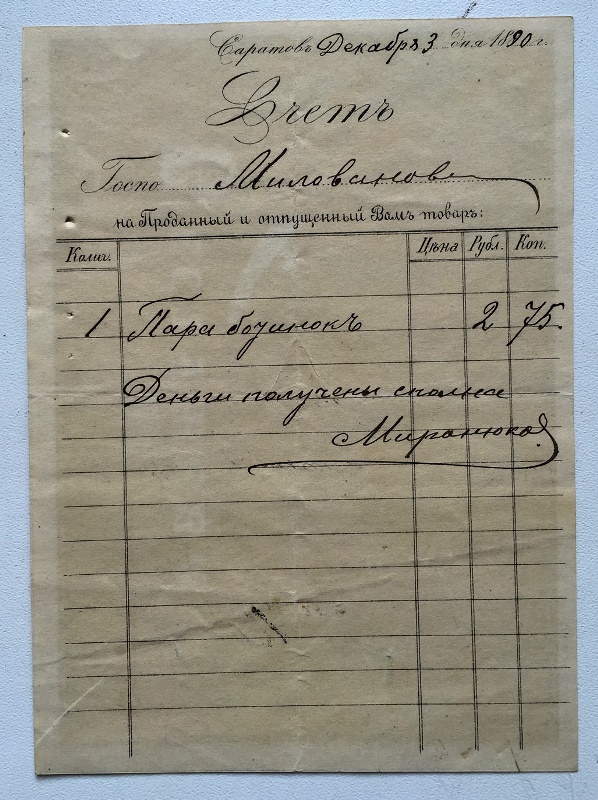 Саратовъ Декабря 3 дня 1890 г.
Счетъ
Госпо Милованов
на Проданный и отпущенный Вамъ товаръ:
Колич. Цѣна Рубл. Коп.
1 Пара ботинокъ 2 75
Деньги получены сполна